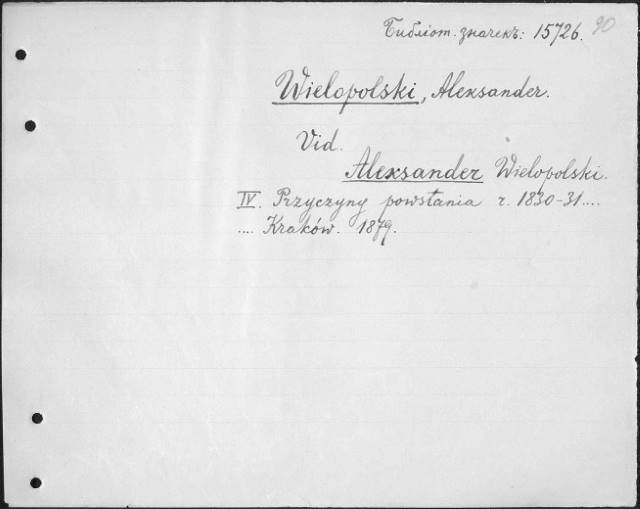 Библіот. значекъ: 15726. 90
Wielopolski, Alexsander.
Vid.
Alexsander Wielopolski.
IV. Przyczyny powstania r. 1830-31....
.... Kraków. 1879.